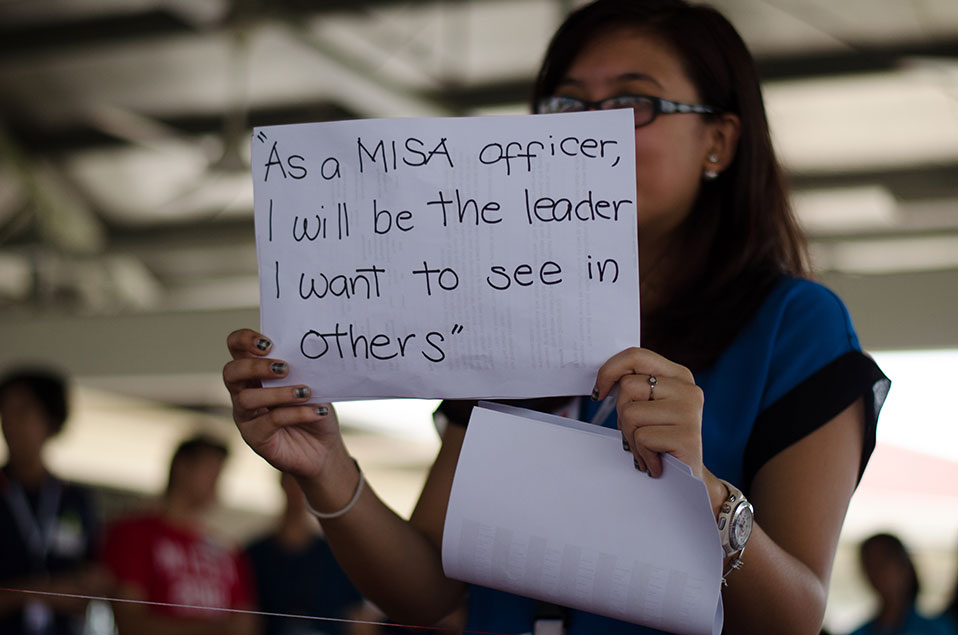 "As a MISA officer,
I will be the leader
I want to see in
others"